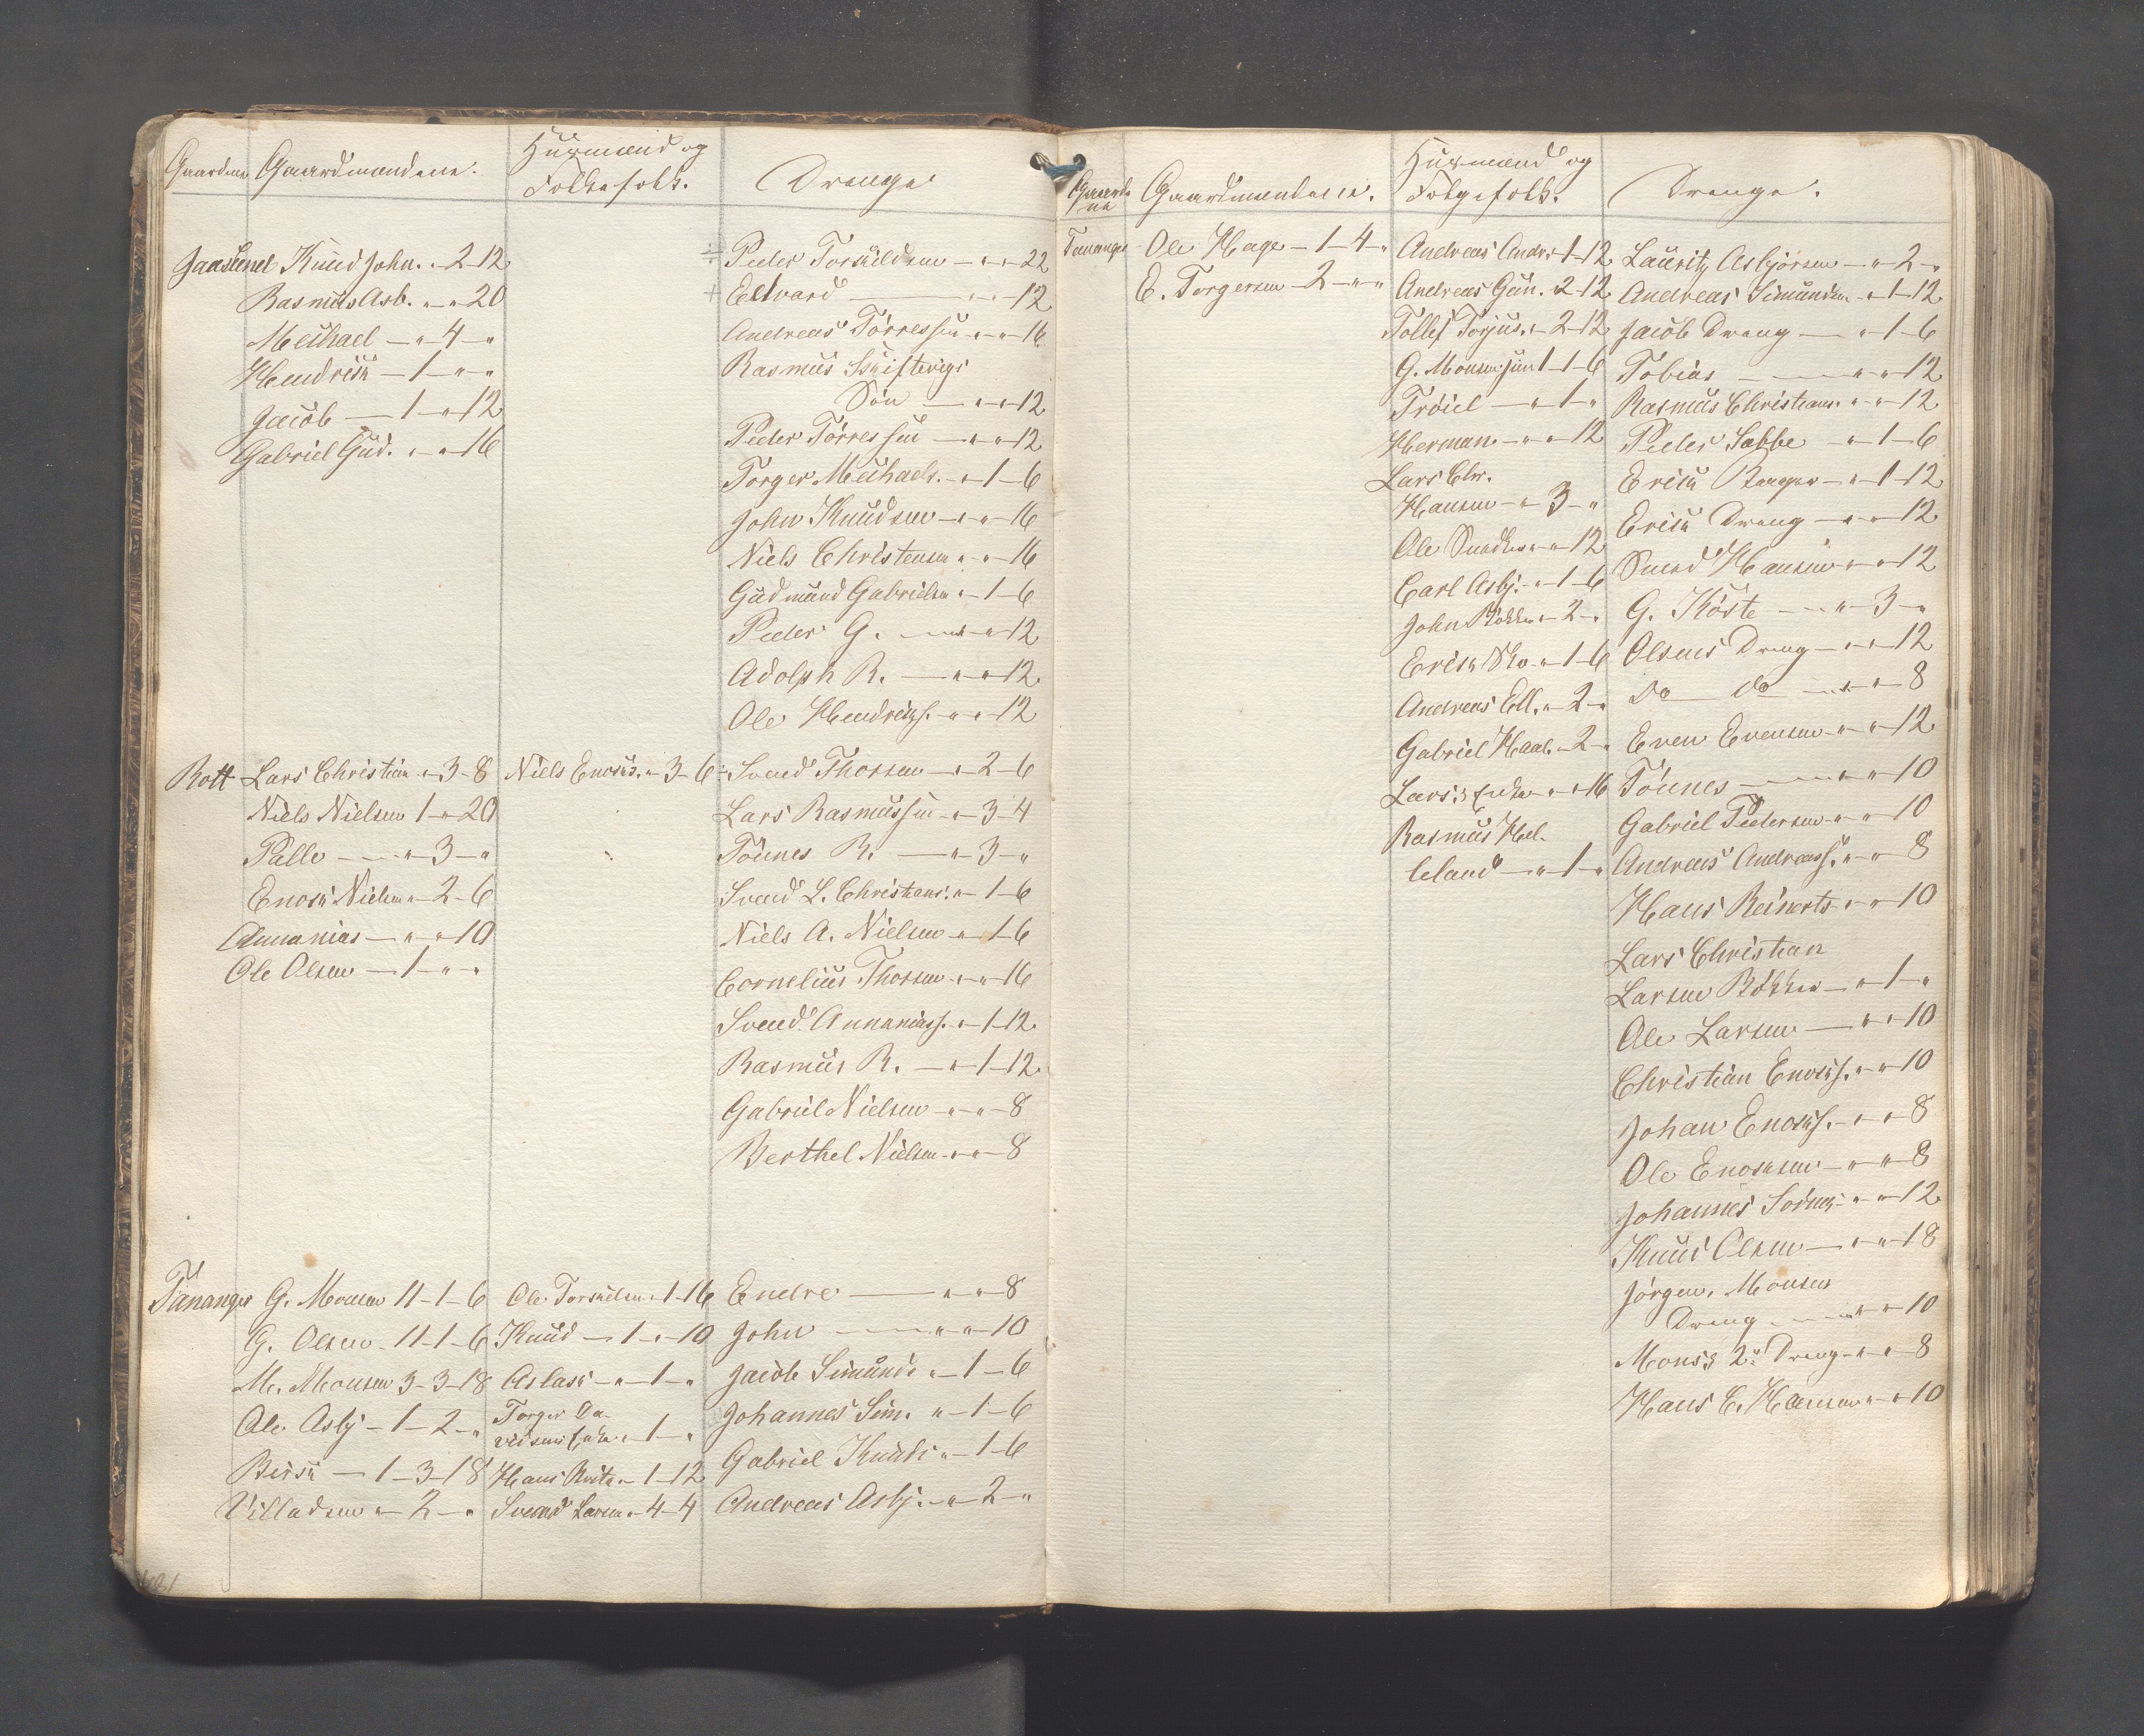 Gaardene Gaardmændene. Huusmænd og Folkefolk. Drenge
Jaasund Knud John. " 2-12
Rasmus Asb. " " 20
Michael — " 4 — "
Hendrich — 1 — " "
Jacob — 1 — " 12
Gabriel Gud. " — " 16
÷ Peder Torkildsen — " " — 22
+ Edvard — " " — 12
Andreas Tørressen " — " — 16
Rasmus
Søn — " " 12
Peder Tørressen — " " 12
Torger Michaels. — " 1 — 6
John Knudsen — " " — 16
Niels Christensen " " — 16
Gudmund Gabrielsen " — 1 — 6
Peder G. — " — " 12
Adolph R. — " — " 12
Ole Hendrichs. " — " — 12
Rott Lars Christian " — 3 — 8 Niels Enochs. " — 3 — 6 ÷ Svend Thorsen — " 2 — 6
Niels Nielsen 1 — " 20 Lars Rasmussen — " — 3 — 4
Palle — " — 3 — " Tönnes R. — " 3 — "
Enoch Nielsen " — 2 — 6 Svend L. Christians. " — 1 — 6
Annanias — " — " 10 Niels A. Nielsen — " 1 — 6
Ole Olsen — 1 — " — " Cornelius Thorsen " — " 16
Svend Annaniass. " — 1 — 12
Rasmus R. — " — 1 — 12
Gabriel Nielsen — " — " — 8
Berthel Nielsen " — " — 8
Tananger G. Monsen 11 — 1 — 6 Ole Torkildsen " 1 — 16 Endre — " " — 8
G. Olsen 11 — 1 — 6 Knud — 1 — " — 10 John — " " — 10
M. Monsen 3 — 3 — 18 Aslach — " — 1 — " Jacob Simunds " — 1 — 6
Ole Asbj — 1 — 2 — " Torger Da-
vidsens Enke " — 1 — " Johannes Sim. " — 1 — 6
Birch — 1 — 3 — 18 Hans " — 1 — 12 Gabriel Knuds " — 1 — 6
Villadsen " — 2 — " Svend Larsen " — 4 — 4 Andreas Asbj. — " — 2 — "
Gaarde
ne Gaardmændene. Huusmænd og Folgefolk. Drenge.
Tananger Ole Hage — 1 — 4 — "
E. Torgersen — 2 — " — "
Andreas Andrs 1 — 12
Andreas Gun. 2 — 12
Tollef Torjus. " — 2 — 12
G. Monsen jun 1 — 1 — 6
Troiel — " 1 — "
Herman — " — " 12
Lars Chr.
Hansen — " 3 — "
Ole " — " 12
Carl Asbj. — " 1 — 6
John Rökken " — 2 — "
Erich " 1 — 6
Andreas Ell. " — 2 — "
Gabriel Haal. — 2 — "
Lars's Enke " — " 16
Rasmus Hel-
leland — " — 1 — "
Lauritz Asbjörsen — " — 2 — "
Andreas Simundsen — " 1 — 12
Jacob Dreng — " 1 — 6
Tobias — " — " 12
Rasmus Christians. " — " — 12
Peder Sabbe — " 1 — 6
Erich — " — 1 — 12
Erich Dreng — " — " — 12
Svend Hansen " — " — 12
G. Köste — " — 3 — "
Olsens Dreng — " — " 12
Do — do — " — " — 8
Even Evensen — " — " — 12
Tönnes — " — " 10
Gabriel Pedersen " — " 10
Andreas Andreass. " — " 8
Hans Reinerts " — " — 10
Lars Christian
Larsen Rökken — " — 1 — "
Ole Larsen — " " 10
Christian Enochs. " — " 10
Johan Enochs. — " — " 8
Ole Enochsen — " — " 8
Johannes " — " — 12
Knud Olsen — " — " — 18
Jörgen. Monsens
Dreng — " — " 10
Mons's 2de Dreng " — " — 8
Hans C. Hansen " — " 10